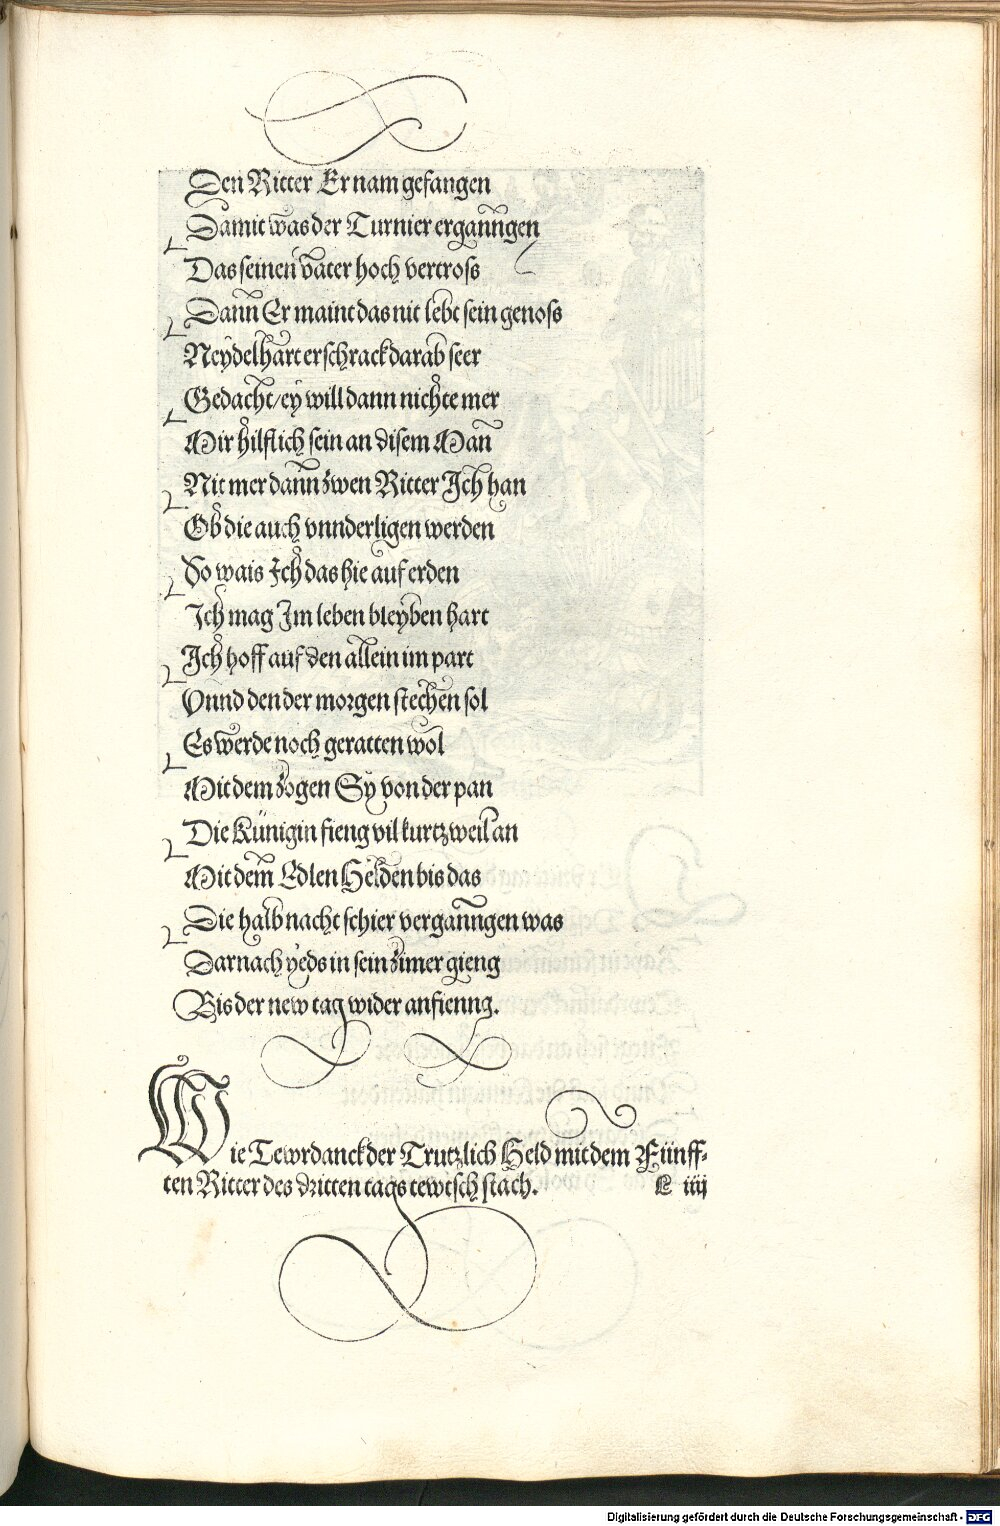 Den Ritter Er nam gefangen
Damit was der Turnier erganngen
Das seinen vater hoch vertross
Dann Er maint das nit lebt sein genoss
Neydelhart erschrack darab seer
Gedacht / ey will dann nichte mer
Mir hilflich sein an disem Man
Nit mer dann zwen Ritter Ich han
Ob die auch vnnderligen werden
So wais Ich das hie auf erden
Ich mag Im leben bleyben hart
Ich hoff auf den allein im part
Vnnd den der morgen stechen sol
Es werde noch geratten wol
Mit dem zogen Sy von der pan
Die Künigin fieng vil kurtzweil an
Mit dem Edlen Helden bis das
Die halb nacht schier verganngen was
Darnach yeds in sein zimer gieng
Bis der new tag wider anfienng.
Wie Tewrdanck der Trutzlich Held mit dem Fünff-
ten Ritter des dritten tags tewtsch stach.
iiij
Digitalisierung gefördert durch die Deutsche Forschungsgemeinschaft - DFG